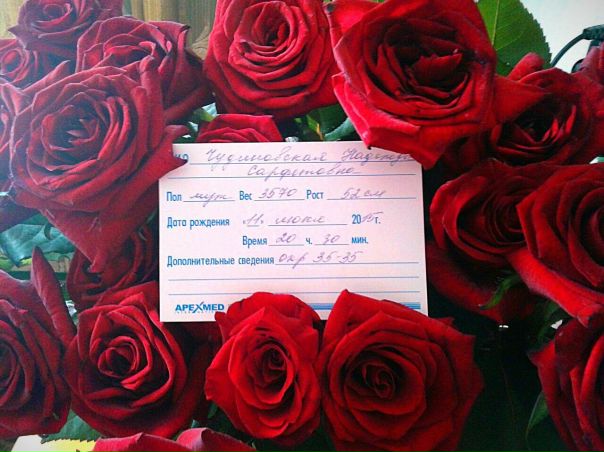 Чудиновская Надежда
Пол муж Вес 3570 Рост 52 см
Дата рождения 11. июля 2015г.
Время 20 ч. 30 мин.
Дополнительные сведения окр 35-35
APEXMED